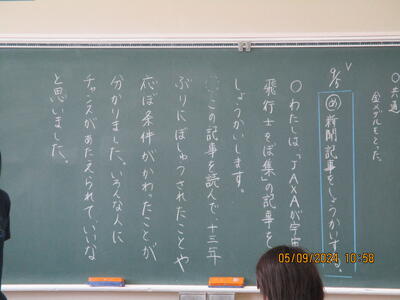 〇共通
金メダルをとった
9/5
め 新聞記事をしょうかいする。
〇わたしは、「JAXAが宇宙
飛行士をぼ集」の記事を
しょうかいします。
この記事を読んで、十三年
ぶりにぼしゅうされたことや
応ぼ条件がかわったことが
分かりました。いろんな人に
チャンスがあたえられて、いいな
と思いました。
05/09/2024 10:58